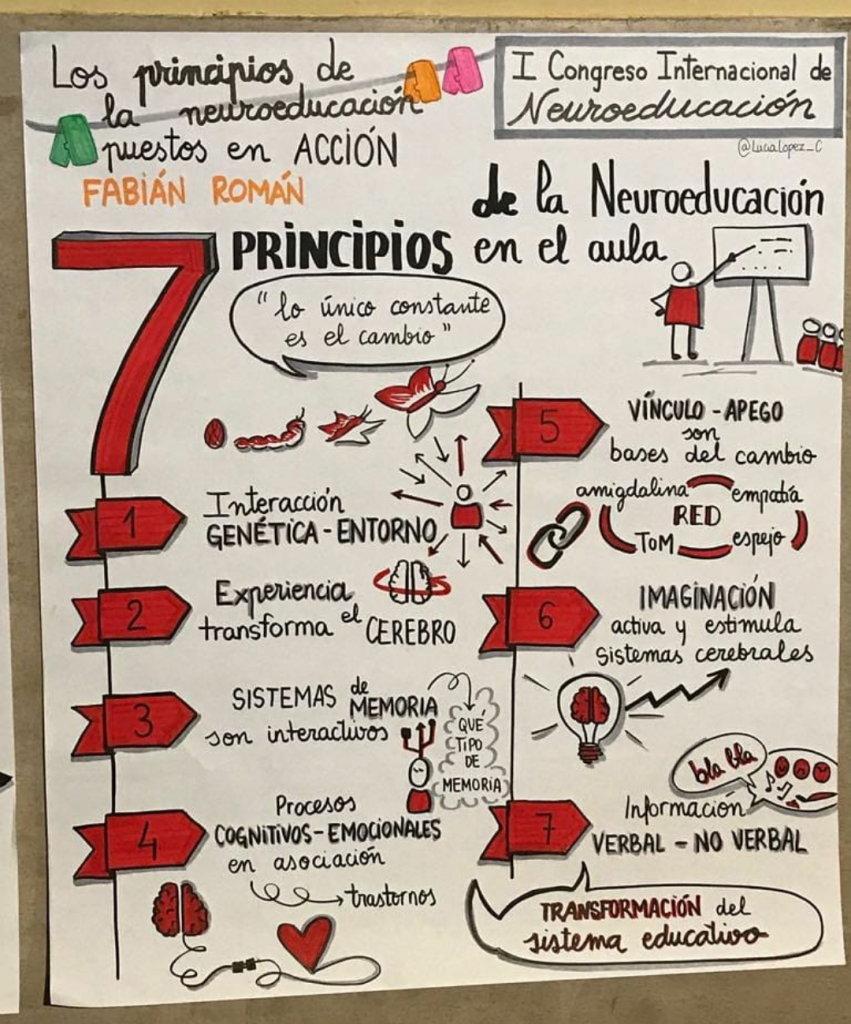 Los principios de
la neuroeducación
puestos en ACCIÓN
FABIÁN ROMÁN
I Congreso Internacional de
Neuroeducación
@LuciaLopez_C
7 PRINCIPIOS de la Neuroeducación
en el aula
"lo único constante
es el cambio"
1
Interacción
GENÉTICA - ENTORNO
2
Experiencia
transforma el CEREBRO
3
SISTEMAS de MEMORIA
son interactivos
QUÉ
TIPO
DE
MEMORIA
4
Procesos
COGNITIVOS - EMOCIONALES
en asociación
trastornos
5
VÍNCULO - APEGO
son
bases del cambio
amigdalina empatía
RED
TOM espejo
6
IMAGINACIÓN
activa y estimula
sistemas cerebrales
bla bla
7
Información
VERBAL - NO VERBAL
TRANSFORMACIÓN del
sistema educativo